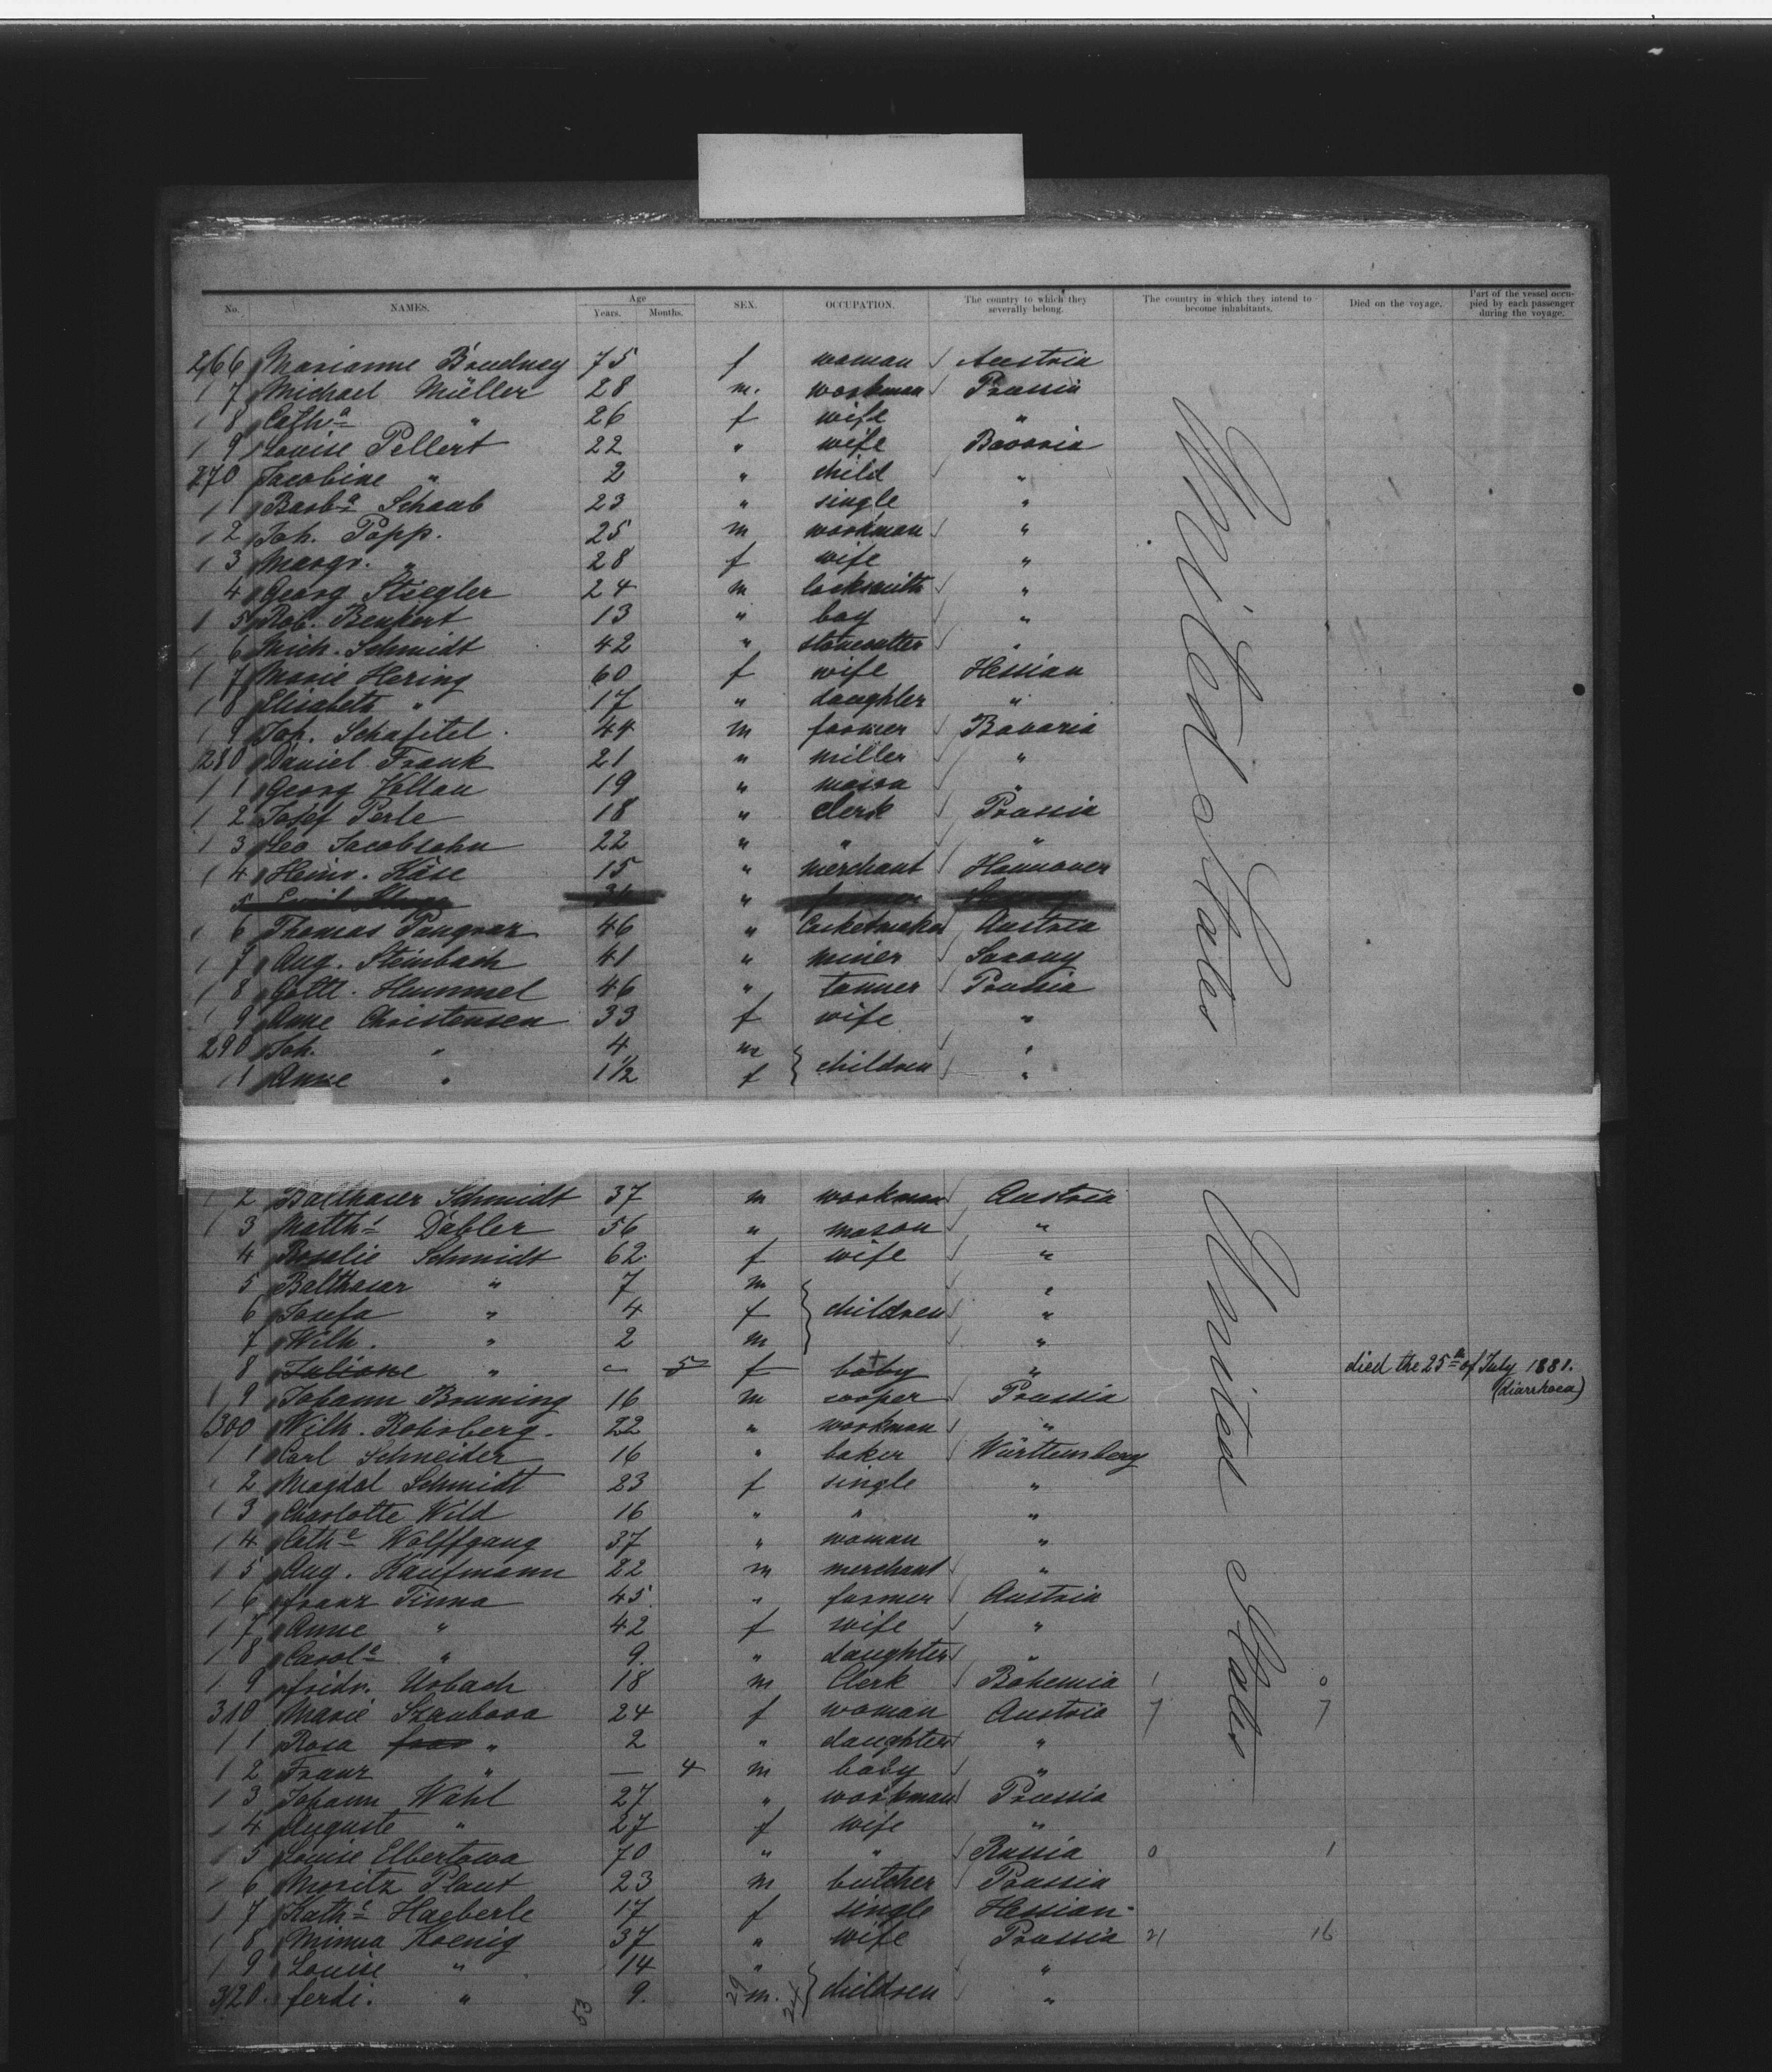 No. NAMES. Age Years. Months. SEX. OCCUPATION. The country to which they severally belong. The country in which they intend to become inhabitants. Died on the voyage. Part of the vessel occupied by each passenger during the voyage.
266 Marianne 75 f woman Austria
7 Michael Müller 28 m. workman Prussia
8 Cath.a " 26 f wife "
9 Louise Pellert 22 " wife Bavaria
270 Jacobine " 2 " child "
1 Barb.a Schaub 23 " single "
2 Joh. Popp. 25 m workman "
3 Margr. " 28 f wife "
4 Georg Stiegler 24 m locksmith "
5 Rob. Benkert 13 " boy "
6 Mich. Schmidt 42 " stonecutter "
7 Marie Hering 60 f wife Hessian
8 Elisabeth " 17 " daughter "
9 Joh. Schafitel 44 m farmer Bavaria
280 Daniel Frank 21 " miller "
1 Georg Vollau 19 " mason "
2 Josef Perle 18 " clerk Prussia
3 Leo Jacobsohn 22 " " "
4 Heinr. Käse 15 " merchant Hannover
5 "
6 Thomas 46 " Austria
7 Aug. Steinbach 41 " miner Saxony
8 Gottl. Hummel 46 " tanner Prussia
9 Anne Christensen 33 f wife "
290 Joh. " 4 m children "
1 Anne " 1 1/2 f "
United States
2 Balthaser Schmidt 37 m workman Austria
3 Matth.s Däbler 56 " mason "
4 Rosalie Schmidt 62 f wife "
5 Balthasar " 7 m "
6 Josefa " 4 f children "
7 Wilh. " 2 m "
8 Juliane " — 5 f baby " died the 25th of July 1881. (diarrhoea)
9 Johann Bruning 16 m cooper Prussia
300 Wilh. Rohrberg. 22 " workman "
1 Carl Schneider 16 " baker Württemberg
2 Magdal Schmidt 23 f single "
3 Charlotte Wild 16 " " "
4 Cath.e Wolffgang 37 " woman "
5 Aug. Kaufmann 22 m merchant "
6 franz Tinna 45. " farmer Austria
7 Anne " 42 f wife "
8 Carol.e " 9. " daughter "
9 fridr. Urbach 18 m Clerk Bohemia 1 0
310 Marie 24 f woman Austria 7 7
1 Rosa " 2 " daughter "
2 Franz " — 4 m baby "
3 Johann Wahl 27 " workman Prussia
4 Auguste " 27 f wife "
5 Louise Elbertowa 70 " " Russia 0 1
6 Moritz Plaut 23 m butcher Prussia
7 Kath.e Haeberle 17 f single Hessian
8 Minna Koenig 37 " wife Prussia 21 16
9 Louise " 14 " "
320 ferdi. " 9. m. children "
53 29 24
United States